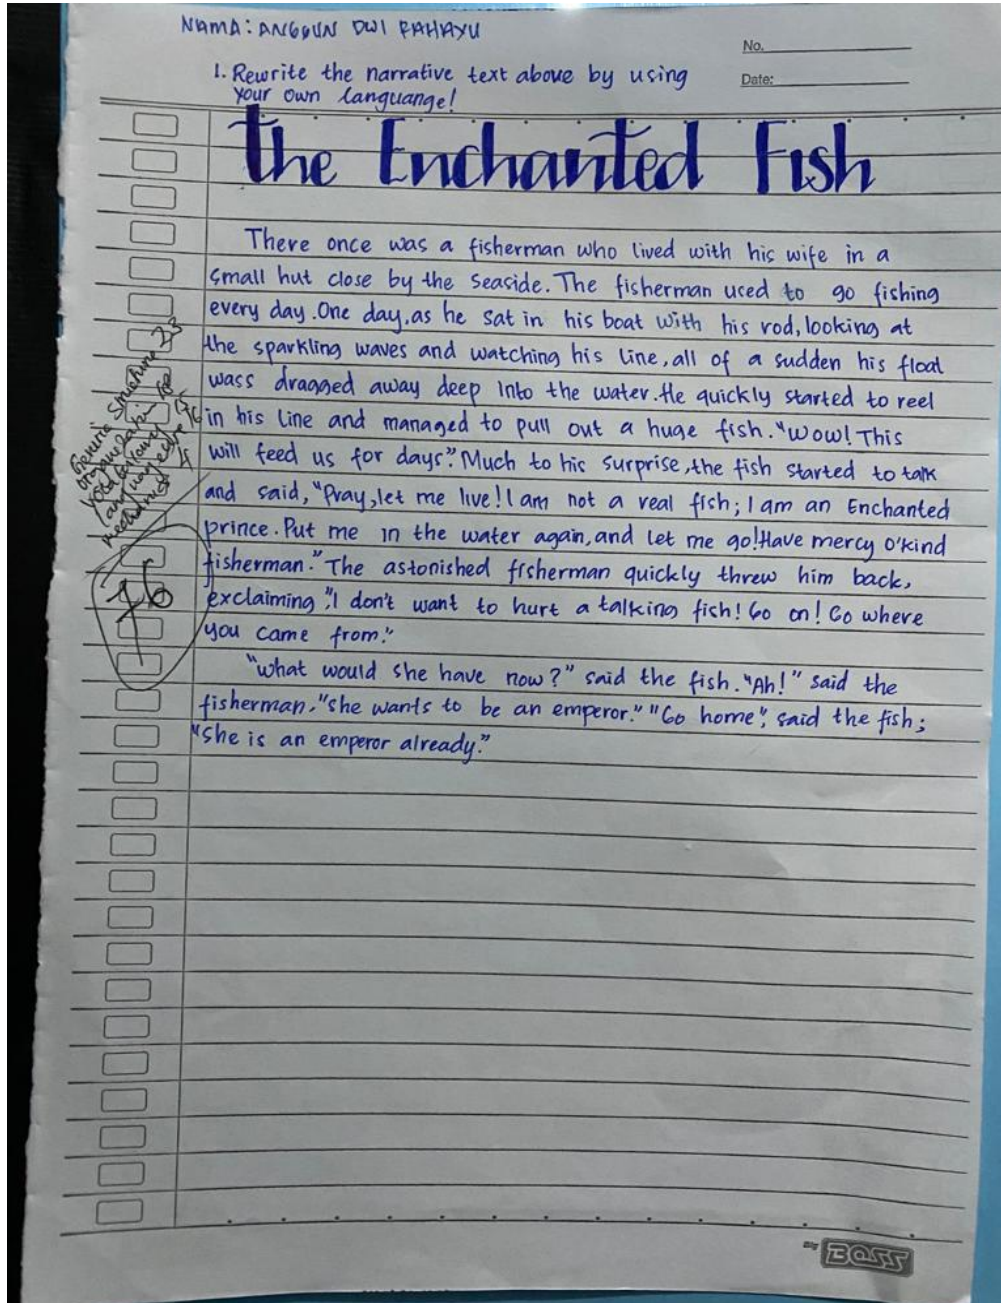 NAMA: ANGGUN DWI RAHAYU
No.
Date:
1. Rewrite the narrative text above by using
your own languange!
The Enchanted Fish
There once was a fisherman who lived with his wife in a
small hut close by the seaside. The fisherman used to go fishing
every day. One day, as he sat in his boat with his rod, looking at
the sparkling waves and watching his line, all of a sudden his float
wass dragged away deep into the water. He quickly started to reel
in his line and managed to pull out a huge fish. "Wow! This
will feed us for days". Much to his surprise, the fish started to talk
and said, "Pray, let me live! I am not a real fish; I am an Enchanted
prince. Put me in the water again, and let me go! Have mercy o'kind
fisherman." The astonished fisherman quickly threw him back,
exclaiming, "I don't want to hurt a talking fish! Go on! Go where
you came from."
"what would she have now?" said the fish. "Ah!" said the
fisherman, "she wants to be an emperor." "Go home", said the fish;
"she is an emperor already."
Generic Structure 23
organization 18
vocabulary 15
language use 16
mechanics 4
76
By BOSS